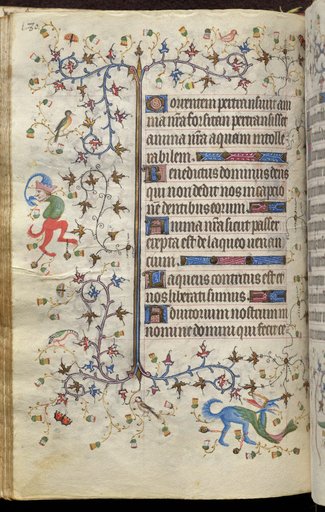 130
Torrentem pertransiuit ani
ma nr̄a forsitan pertransisset
anima nr̄a aquam intolle
rabilem.
Benedictus dominus deus
qui non dedit nos in captio
nē dentibus eorum.
Anima nr̄a sicut passer
erepta est de laqueo uenan
cium.
Laqueus contritus est et
nos liberati sumus.
Adiutorium nostrum in
nomine domini qui fecit ce